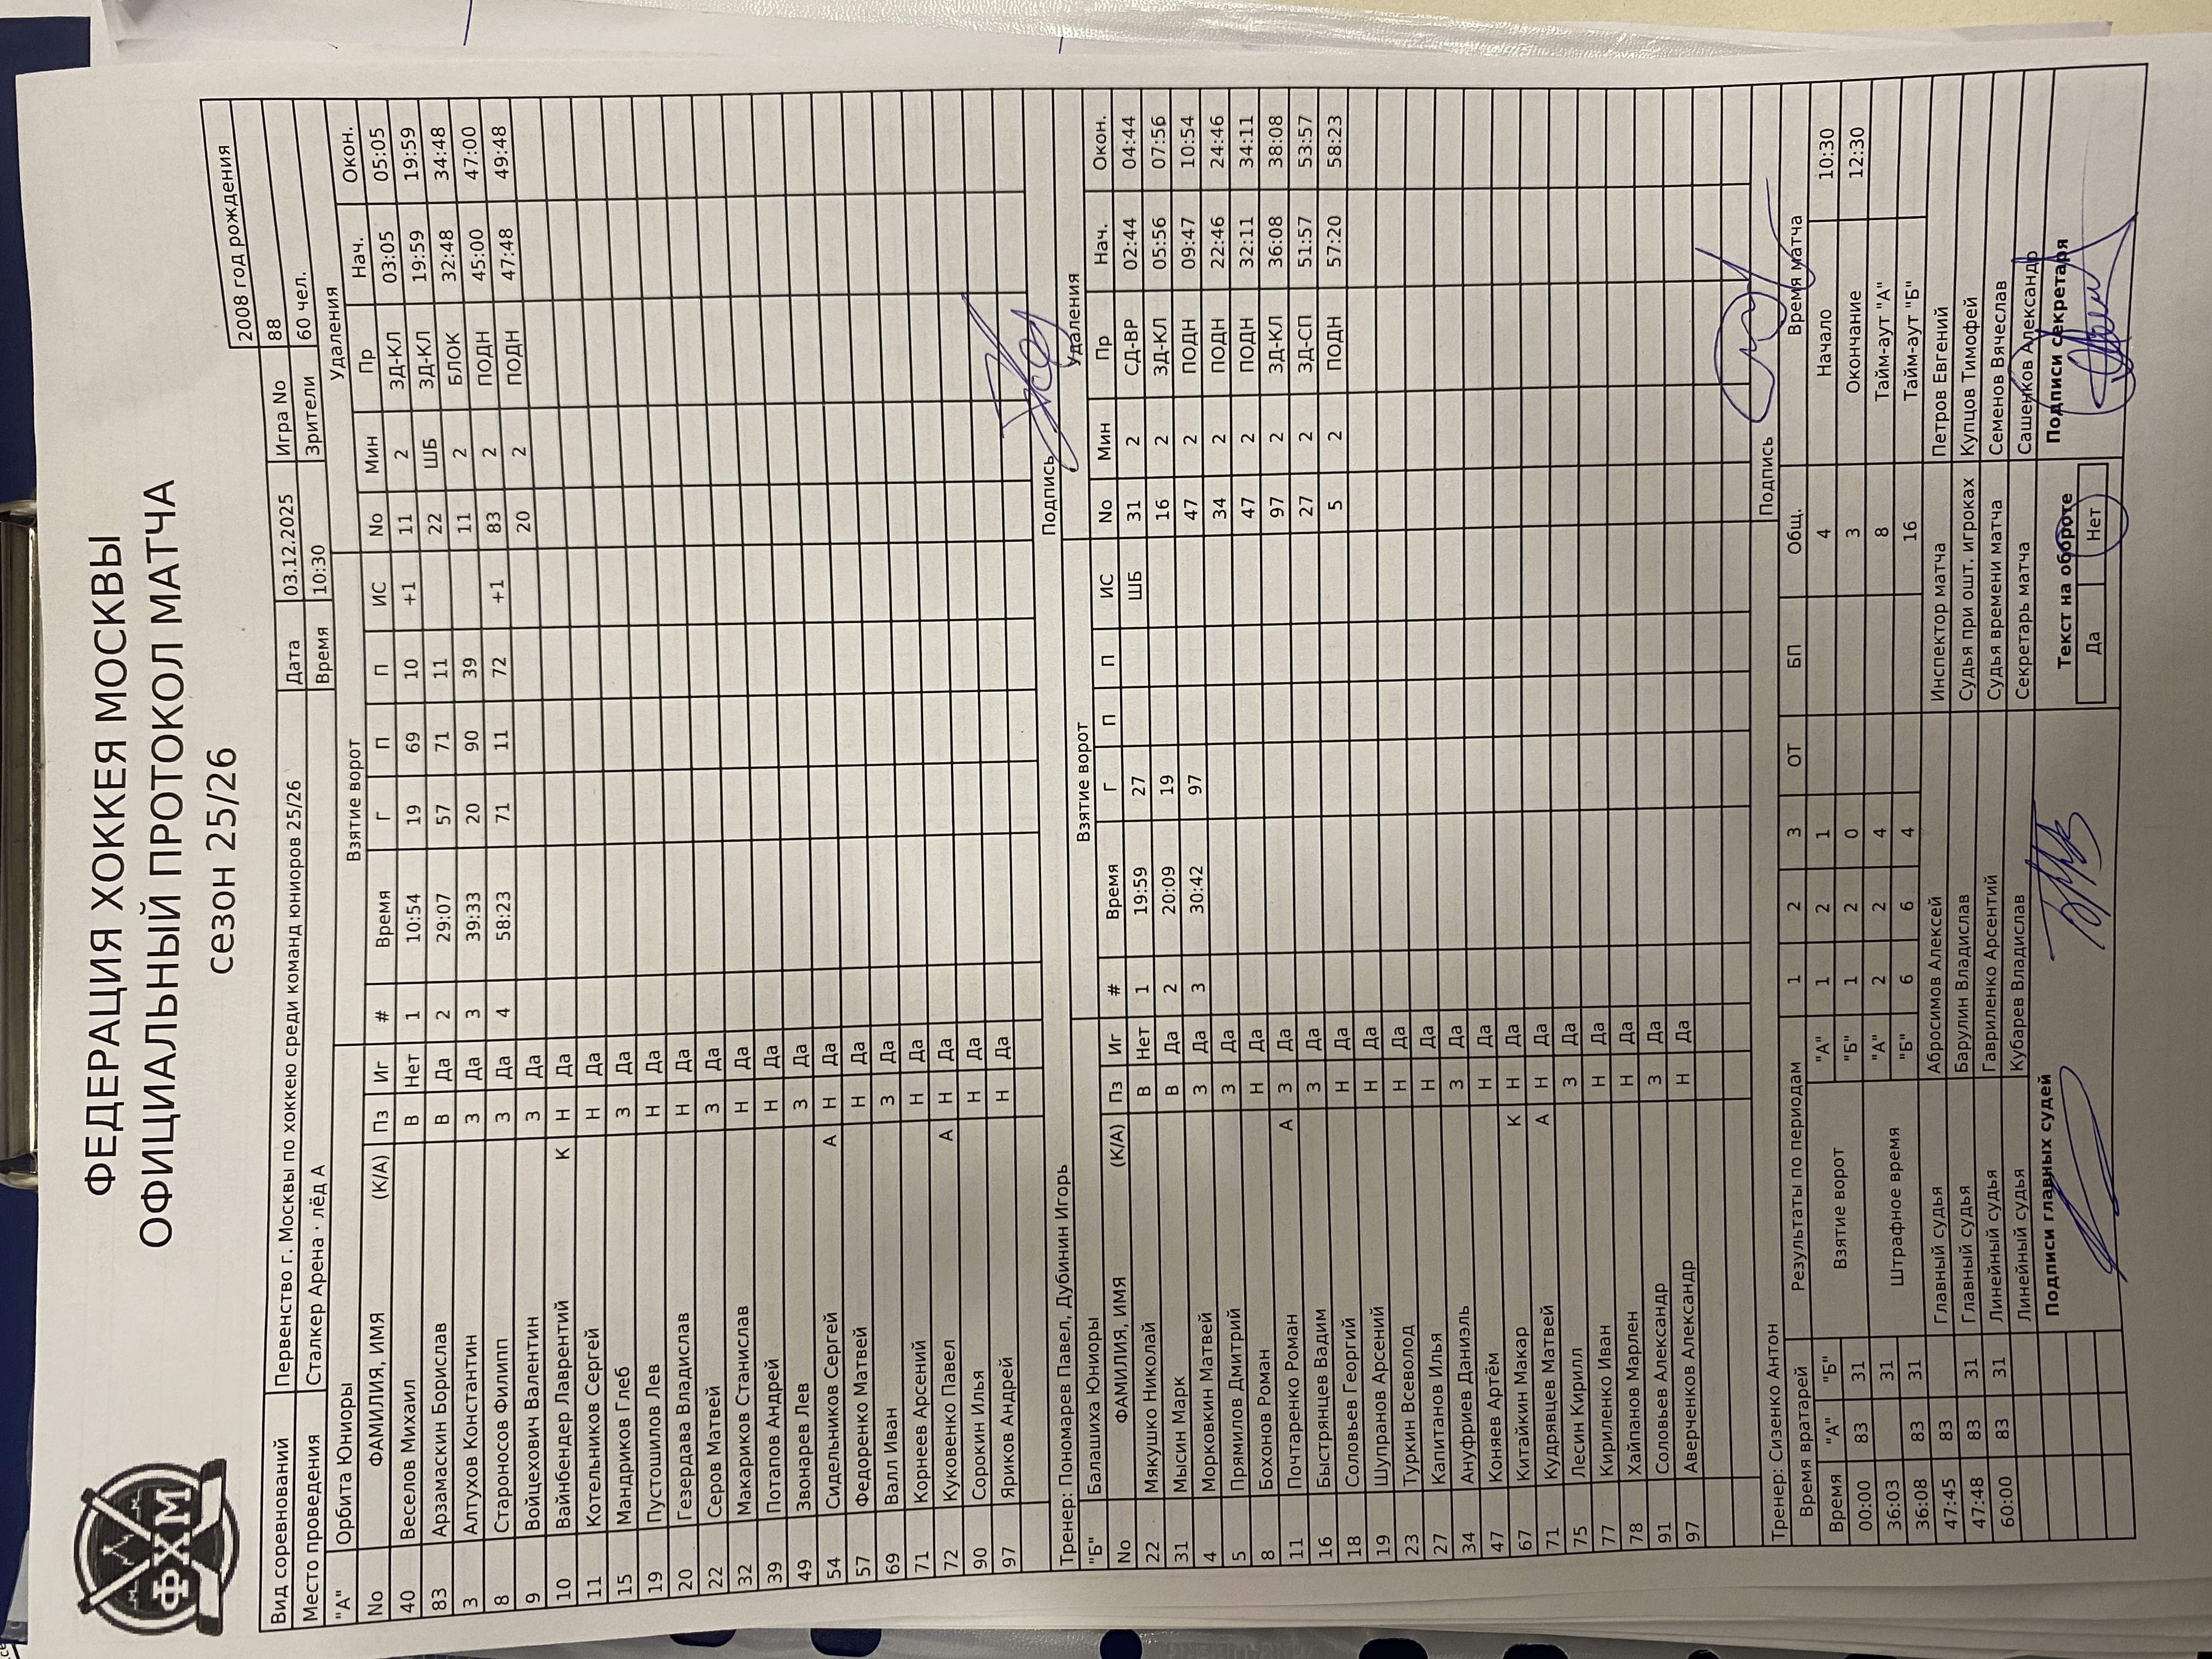 ФХМ
ФЕДЕРАЦИЯ ХОККЕЯ МОСКВЫ
ОФИЦИАЛЬНЫЙ ПРОТОКОЛ МАТЧА
сезон 25/26
2008 год рождения
Вид соревнований Первенство г. Москвы по хоккею среди команд юниоров 25/26 Дата 03.12.2025 Игра No 88
Место проведения Сталкер Арена · лёд А Время 10:30 Зрители 60 чел.
"А" Орбита Юниоры Взятие ворот Удаления
No ФАМИЛИЯ, ИМЯ (К/А) Пз Иг # Время Г П П ИС No Мин Пр Нач. Окон.
40 Веселов Михаил В Нет 1 10:54 19 69 10 +1 11 2 ЗД-КЛ 03:05 05:05
83 Арзамаскин Борислав В Да 2 29:07 57 71 11 22 ШБ ЗД-КЛ 19:59 19:59
3 Алтухов Константин З Да 3 39:33 20 90 39 11 2 БЛОК 32:48 34:48
8 Староносов Филипп З Да 4 58:23 71 11 72 +1 83 2 ПОДН 45:00 47:00
9 Войцехович Валентин З Да 20 2 ПОДН 47:48 49:48
10 Вайнбендер Лаврентий К Н Да
11 Котельников Сергей Н Да
15 Мандриков Глеб З Да
19 Пустошилов Лев Н Да
20 Гезердава Владислав Н Да
22 Серов Матвей З Да
32 Макариков Станислав Н Да
39 Потапов Андрей Н Да
49 Звонарев Лев З Да
54 Сидельников Сергей А Н Да
57 Федоренко Матвей Н Да
69 Валл Иван З Да
71 Корнеев Арсений Н Да
72 Куковенко Павел А Н Да
90 Сорокин Илья Н Да
97 Яриков Андрей Н Да
Тренер: Пономарев Павел, Дубинин Игорь Подпись
"Б" Балашиха Юниоры Взятие ворот Удаления
No ФАМИЛИЯ, ИМЯ (К/А) Пз Иг # Время Г П П ИС No Мин Пр Нач. Окон.
22 Мякушко Николай В Нет 1 19:59 27 ШБ 31 2 СД-ВР 02:44 04:44
31 Мысин Марк В Да 2 20:09 19 16 2 ЗД-КЛ 05:56 07:56
4 Моровкин Матвей З Да 3 30:42 97 47 2 ПОДН 09:47 10:54
5 Прямилов Дмитрий З Да 34 2 ПОДН 22:46 24:46
8 Бохонов Роман Н Да 47 2 ПОДН 32:11 34:11
11 Почтаренко Роман А З Да 97 2 ЗД-КЛ 36:08 38:08
16 Быстрянцев Вадим З Да 27 2 ЗД-СП 51:57 53:57
18 Соловьев Георгий Н Да 5 2 ПОДН 57:20 58:23
19 Шупранов Арсений Н Да
23 Туркин Всеволод Н Да
27 Капитанов Илья Н Да
34 Ануфриев Даниэль З Да
47 Коняев Артём Н Да
67 Китайкин Макар К Н Да
71 Кудрявцев Матвей А Н Да
75 Лесин Кирилл З Да
77 Кириленко Иван Н Да
78 Хайпанов Марлен Н Да
91 Соловьев Александр З Да
97 Аверченков Александр Н Да
Тренер: Сизенко Антон Подпись
Время вратарей Результаты по периодам 1 2 3 ОТ БП Общ. Время матча
Время "А" "Б" Взятие ворот "А" 1 2 1 4 Начало 10:30
00:00 83 31 "Б" 1 2 0 3 Окончание 12:30
36:03 31 Штрафное время "А" 2 2 4 8 Тайм-аут "А"
36:08 83 31 "Б" 6 6 4 16 Тайм-аут "Б"
47:45 83 Главный судья Абросимов Алексей Инспектор матча Петров Евгений
47:48 83 31 Главный судья Барулин Владислав Судья при ошт. игроках Купцов Тимофей
60:00 83 31 Линейный судья Гавриленко Арсентий Судья времени матча Семенов Вячеслав
Линейный судья Кубарев Владислав Секретарь матча Сашенков Александр
Подписи главных судей Текст на обороте Подписи секретаря
Да Нет